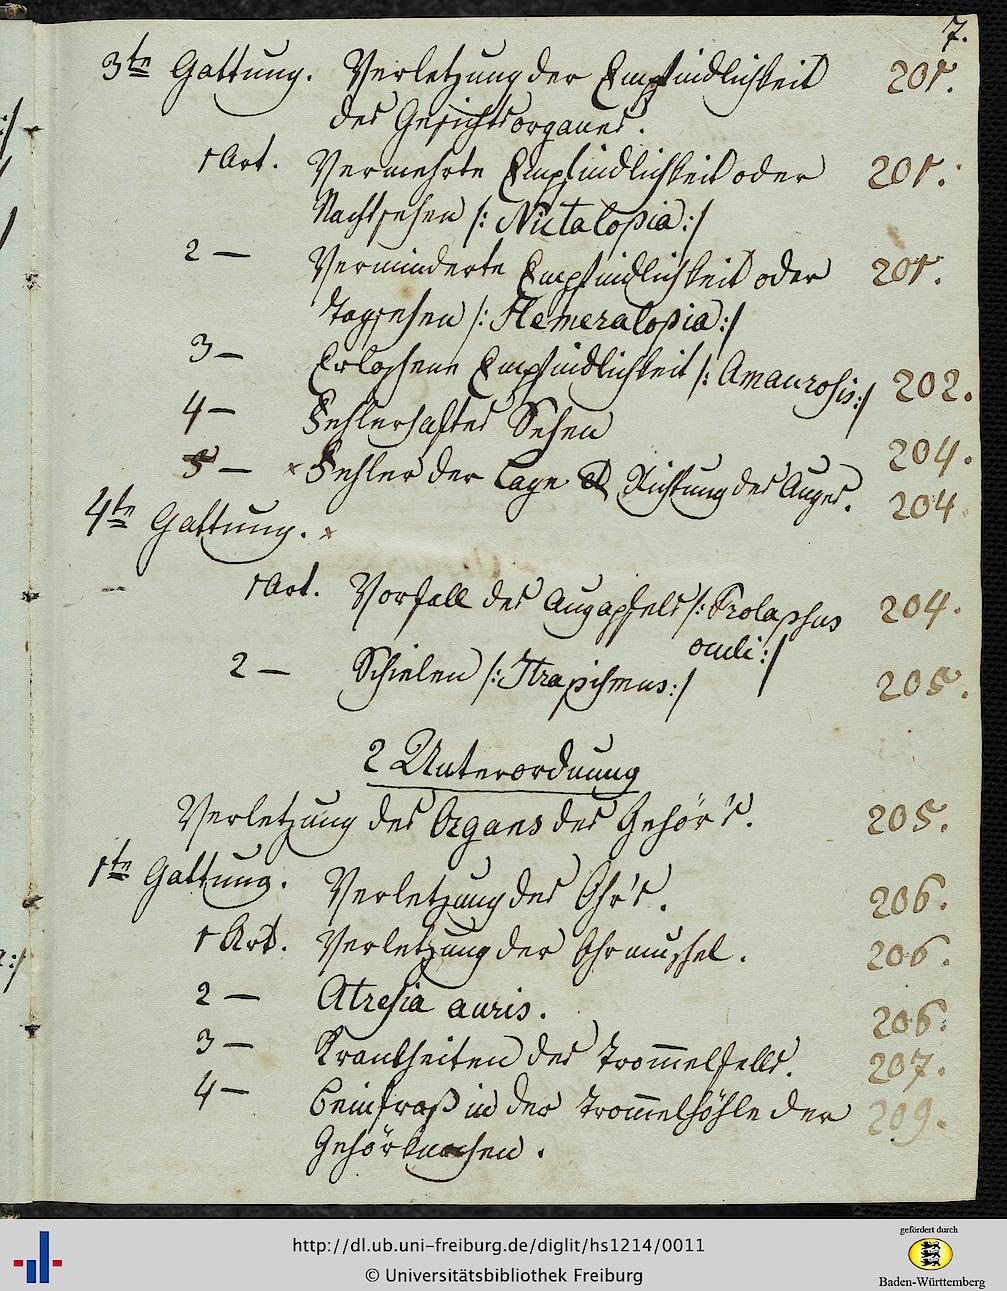 7.
3te Gattung. Verletzung der Empfindlichkeit 201.
des Gesichtsorganes.
1 Art. Vermehrte Empfindlichkeit oder 201.
Nachtsehen /: Nictalopia :/
2 — Verminderte Empfindlichkeit oder 201.
Tagsehen /: Hemeralopia :/
3 — Erloschene Empfindlichkeit /: Amaurosis :/ 202.
4 — Fehlerhaftes Sehen 204.
5 — × Fehler der Lage & Richtung des Auges. 204
4te Gattung. ×
1 Art. Vorfall des Augapfels /: Prolapsus 204.
oculi :/
2 — Schielen /: Strapismus :/ 205.
2 Unterordnung
Verletzung des Organs des Gehör's. 205.
1te Gattung. Verletzung des Ohr's. 206.
1 Art. Verletzung der Ohrmuschel. 206.
2 — Atresia auris. 206.
3 — Krankheiten des Trom̅elfells. 207.
4 — Beinfraß in der Trom̅elhöhle der 209.
Gehörknochen.
http://dl.ub.uni-freiburg.de/diglit/hs1214/0011
© Universitätsbibliothek Freiburg
gefördert durch
Baden-Württemberg